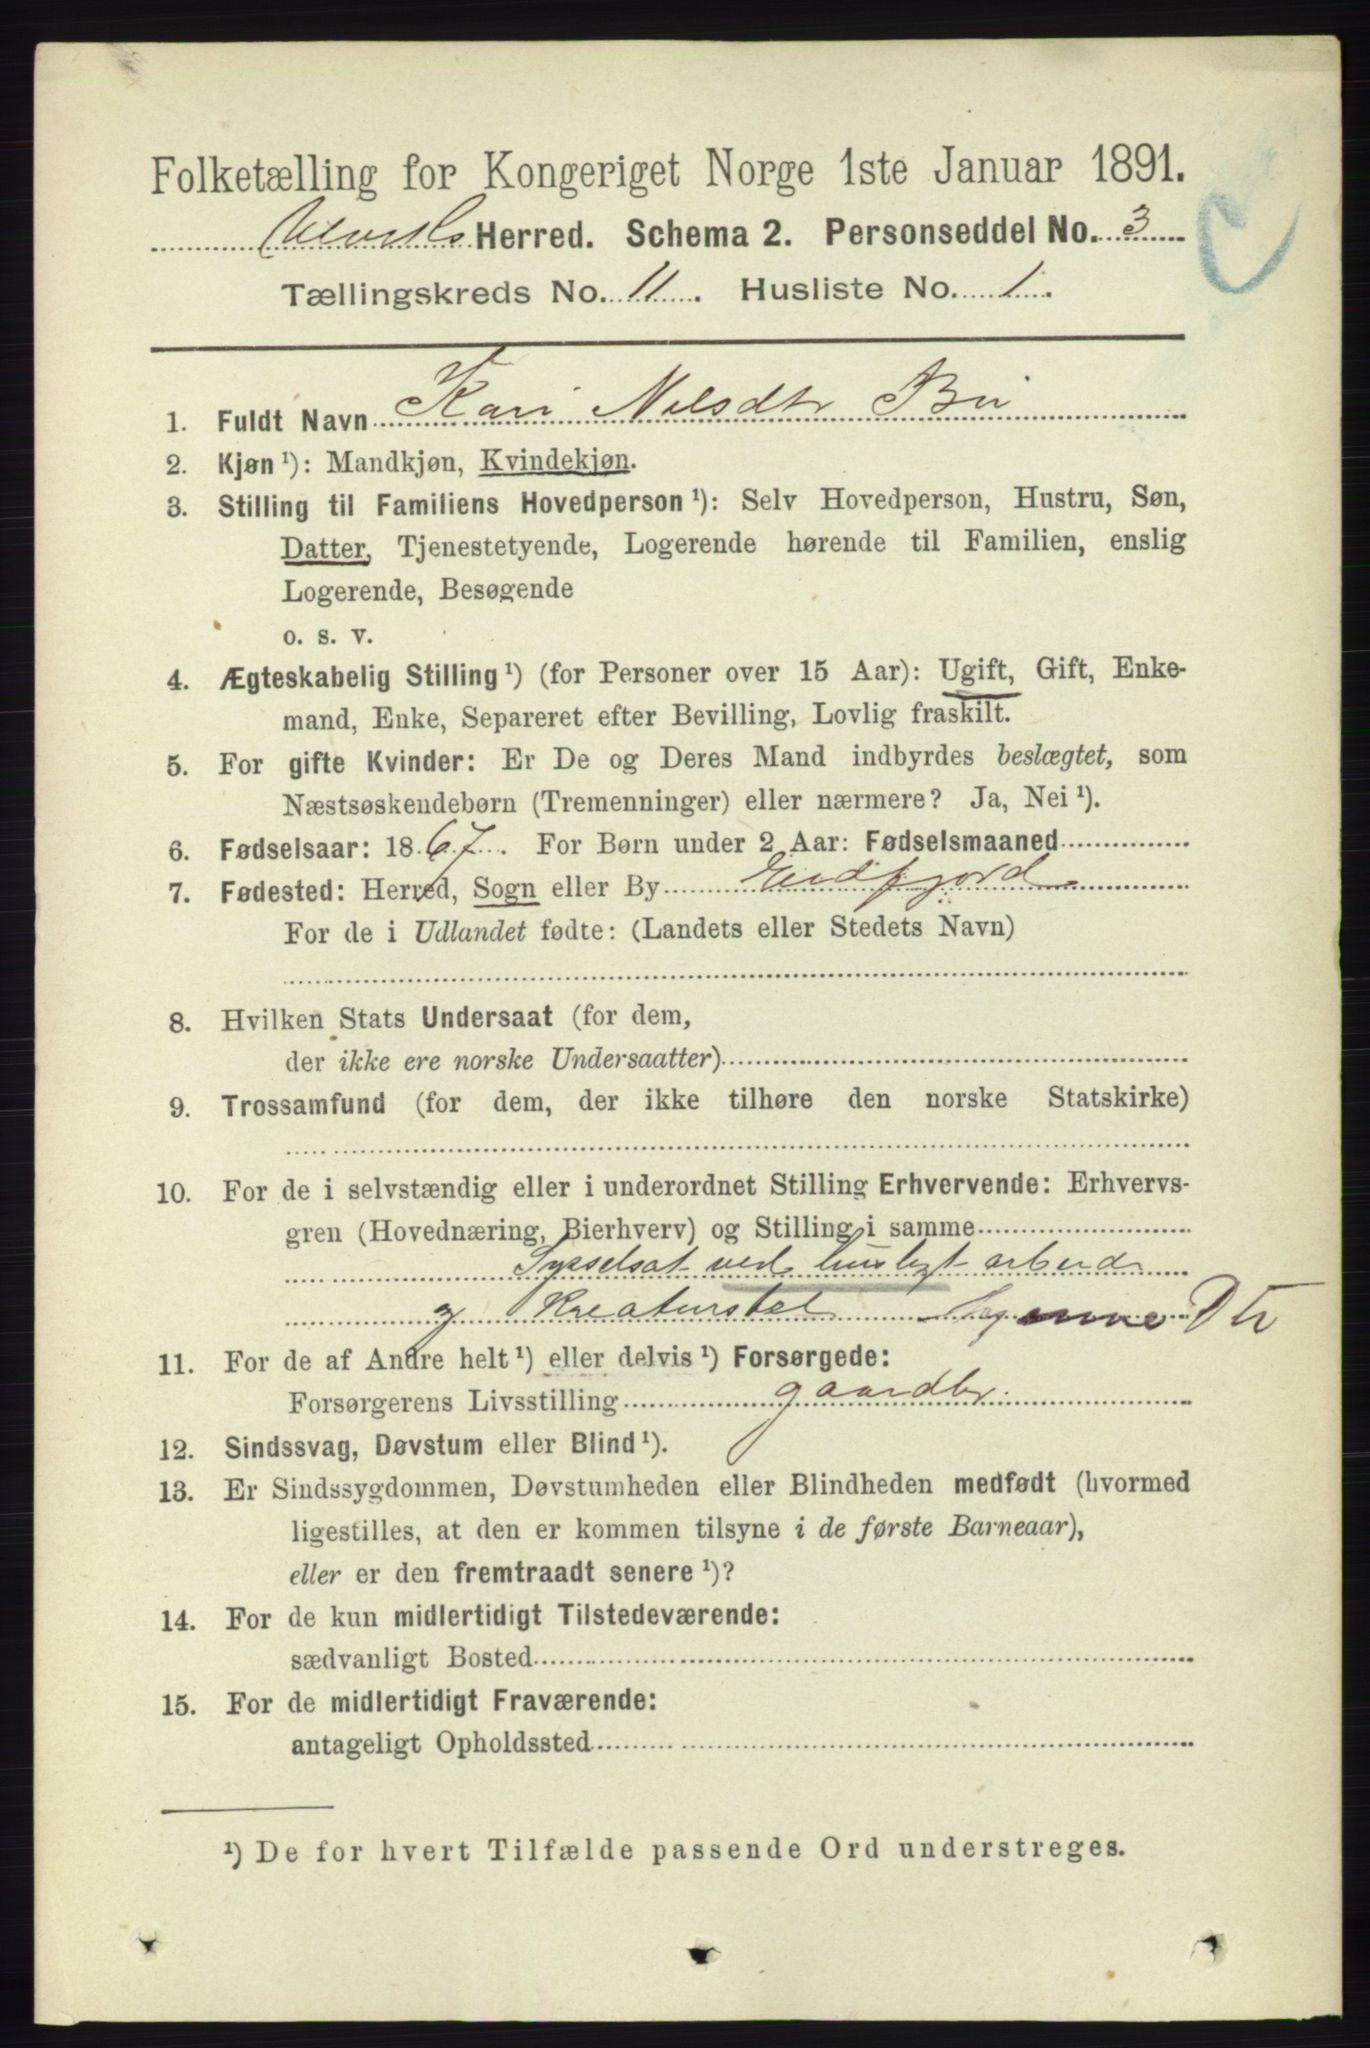 Folketælling for Kongeriget Norge 1ste Januar 1891.
Herred. Schema 2. Personseddel No. 3
Tællingskreds No. 11. Husliste No. 1.
1. Fuldt Navn Kari Nilsdtr Bu
2. Kjøn ¹): Mandkjøn, Kvindekjøn.
3. Stilling til Familiens Hovedperson ¹): Selv Hovedperson, Hustru, Søn,
Datter, Tjenestetyende, Logerende hørende til Familien, enslig
Logerende, Besøgende
o. s. v.
4. Ægteskabelig Stilling ¹) (for Personer over 15 Aar): Ugift, Gift, Enke-
mand, Enke, Separeret efter Bevilling, Lovlig fraskilt.
5. For gifte Kvinder: Er De og Deres Mand indbyrdes beslægtet, som
Næstsøskendebørn (Tremenninger) eller nærmere? Ja, Nei ¹).
6. Fødselsaar: 1867. For Børn under 2 Aar: Fødselsmaaned
7. Fødested: Herred, Sogn eller By Eidfjord
For de i Udlandet fødte: (Landets eller Stedets Navn)
8. Hvilken Stats Undersaat (for dem,
der ikke ere norske Undersaatter)
9. Trossamfund (for dem, der ikke tilhøre den norske Statskirke)
10. For de i selvstændig eller i underordnet Stilling Erhvervende: Erhvervs-
gren (Hovednæring, Bierhverv) og Stilling i samme
Sysselsat ved husligt arbeide
og Kreaturstel Hjemme Dtr
11. For de af Andre helt ¹) eller delvis ¹) Forsørgede:
Forsørgerens Livsstilling gaardbr.
12. Sindssvag, Døvstum eller Blind ¹).
13. Er Sindssygdommen, Døvstumheden eller Blindheden medfødt (hvormed
ligestilles, at den er kommen tilsyne i de første Barneaar),
eller er den fremtraadt senere ¹)?
14. For de kun midlertidigt Tilstedeværende:
sædvanligt Bosted
15. For de midlertidigt Fraværende:
antageligt Opholdssted
¹) De for hvert Tilfælde passende Ord understreges.